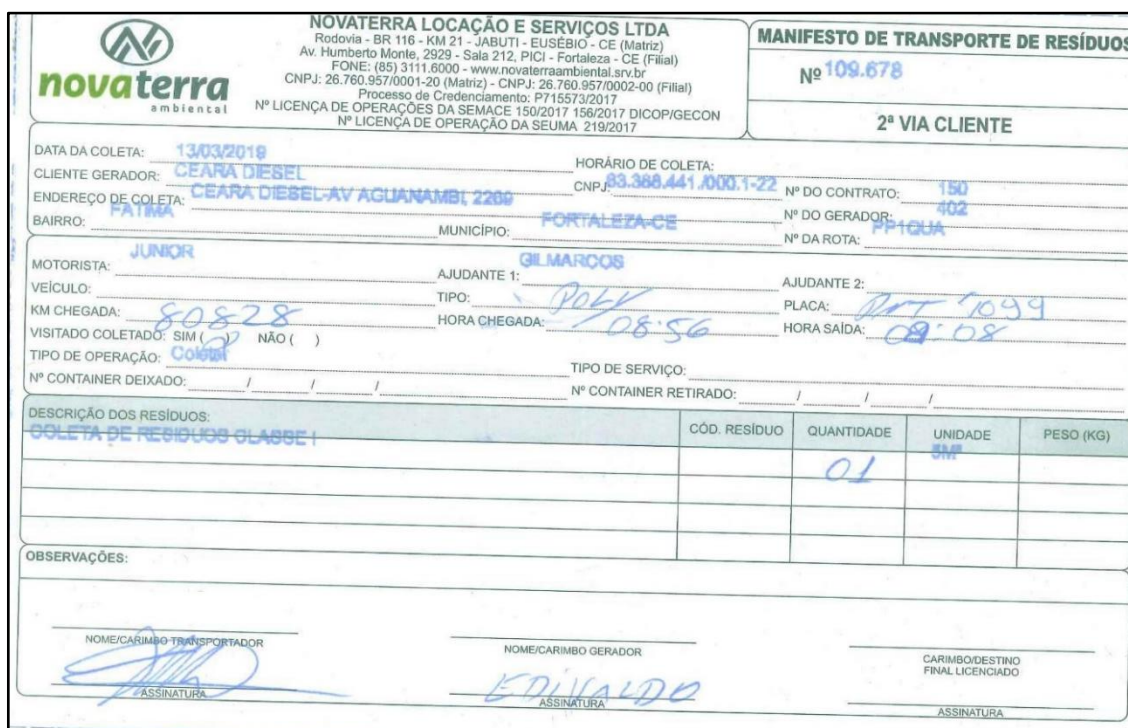 novaterra
ambiental
NOVATERRA LOCAÇÃO E SERVIÇOS LTDA
Rodovia - BR 116 - KM 21 - JABUTI - EUSÉBIO - CE (Matriz)
Av. Humberto Monte, 2929 - Sala 212, PICI - Fortaleza - CE (Filial)
FONE: (85) 3111.6000 - www.novaterraambiental.srv.br
CNPJ: 26.760.957/0001-20 (Matriz) - CNPJ: 26.760.957/0002-00 (Filial)
Processo de Credenciamento: P715573/2017
Nº LICENÇA DE OPERAÇÕES DA SEMACE 150/2017 156/2017 DICOP/GECON
Nº LICENÇA DE OPERAÇÃO DA SEUMA 219/2017
MANIFESTO DE TRANSPORTE DE RESÍDUOS
Nº 109.678
2ª VIA CLIENTE
DATA DA COLETA: 13/03/2019 HORÁRIO DE COLETA:
CLIENTE GERADOR: CEARA DIESEL CNPJ: 83.388.441 /000.1-22 Nº DO CONTRATO: 150
ENDEREÇO DE COLETA: CEARA DIESEL-AV AGUANAMBI, 2269 Nº DO GERADOR: 402
BAIRRO: FATIMA MUNICÍPIO: FORTALEZA-CE Nº DA ROTA: PP1QUA
MOTORISTA: JUNIOR AJUDANTE 1: GILMARCOS AJUDANTE 2:
VEÍCULO: TIPO: POLY PLACA: 1099
KM CHEGADA: 80828 HORA CHEGADA: 08:56 HORA SAÍDA: 09:08
VISITADO COLETADO: SIM ( ) NÃO ( )
TIPO DE OPERAÇÃO: Coletar TIPO DE SERVIÇO:
Nº CONTAINER DEIXADO: / / / Nº CONTAINER RETIRADO: / / /
DESCRIÇÃO DOS RESÍDUOS: CÓD. RESÍDUO QUANTIDADE UNIDADE PESO (KG)
COLETA DE RESIDUOS CLASSE I 01 5M³
OBSERVAÇÕES:
NOME/CARIMBO TRANSPORTADOR NOME/CARIMBO GERADOR CARIMBO/DESTINO
FINAL LICENCIADO
EDIVALDO
ASSINATURA ASSINATURA ASSINATURA